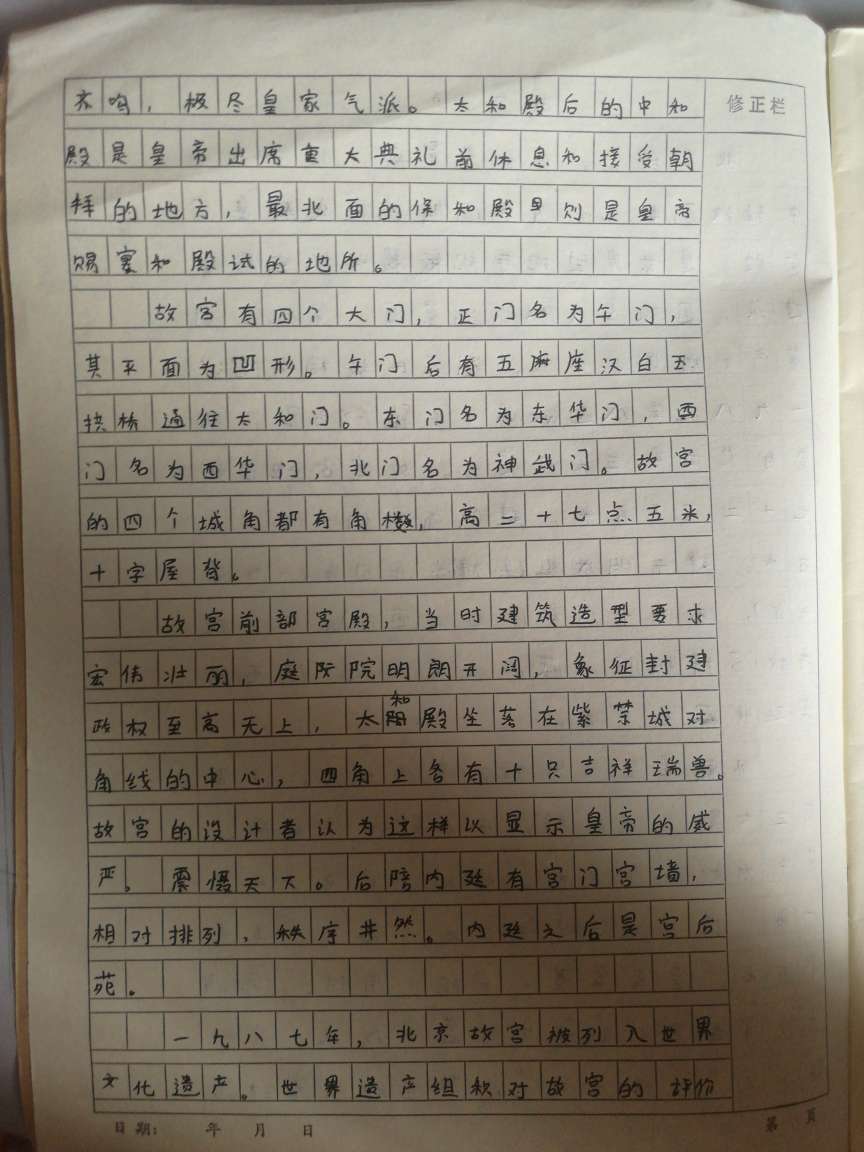 齐鸣，极尽皇家气派。太和殿后的中和
修正栏
殿是皇帝出席重大典礼前休息和接受朝
拜的地方，最北面的保和殿里则是皇帝
赐宴和殿试的地所。
故宫有四个大门，正门名为午门，
其平面为凹形。午门后有五座汉白玉
拱桥通往太和门。东门名为东华门，西
门名为西华门，北门名为神武门。故宫
的四个城角都有角楼，高二十七点五米，
十字屋脊。
故宫前部宫殿，当时建筑造型要求
宏伟壮丽，庭院明朗开阔，象征封建
政权至高无上，太和殿坐落在紫禁城对
角线的中心，四角上各有十只吉祥瑞兽。
故宫的设计者认为这样以显示皇帝的威
严。震慑天下。后陪内廷有宫门宫墙，
相对排列，秩序井然。内廷之后是宫后
苑。
一九八七年，北京故宫被列入世界
文化遗产。世界遗产组织对故宫的评价
日期： 年 月 日
第 页